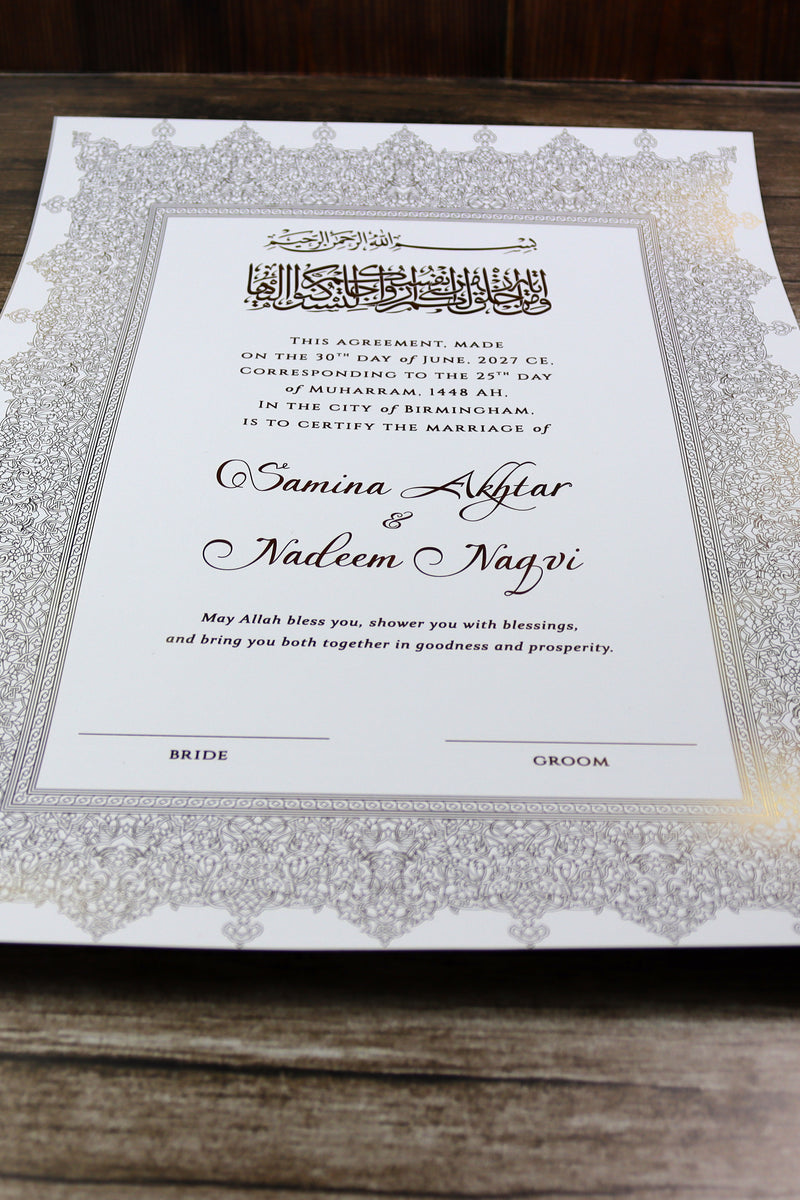 بسم الله الرحمن الرحيم
ومن آياته أن خلق لكم من أنفسكم أزواجا لتسكنوا إليها
THIS AGREEMENT, MADE
ON THE 30TH DAY of JUNE, 2027 CE,
CORRESPONDING TO THE 25TH DAY
of MUHARRAM, 1448 AH,
IN THE CITY of BIRMINGHAM,
IS TO CERTIFY THE MARRIAGE of
Samina Akhtar
&
Nadeem Naqvi
May Allah bless you, shower you with blessings,
and bring you both together in goodness and prosperity.
BRIDE GROOM